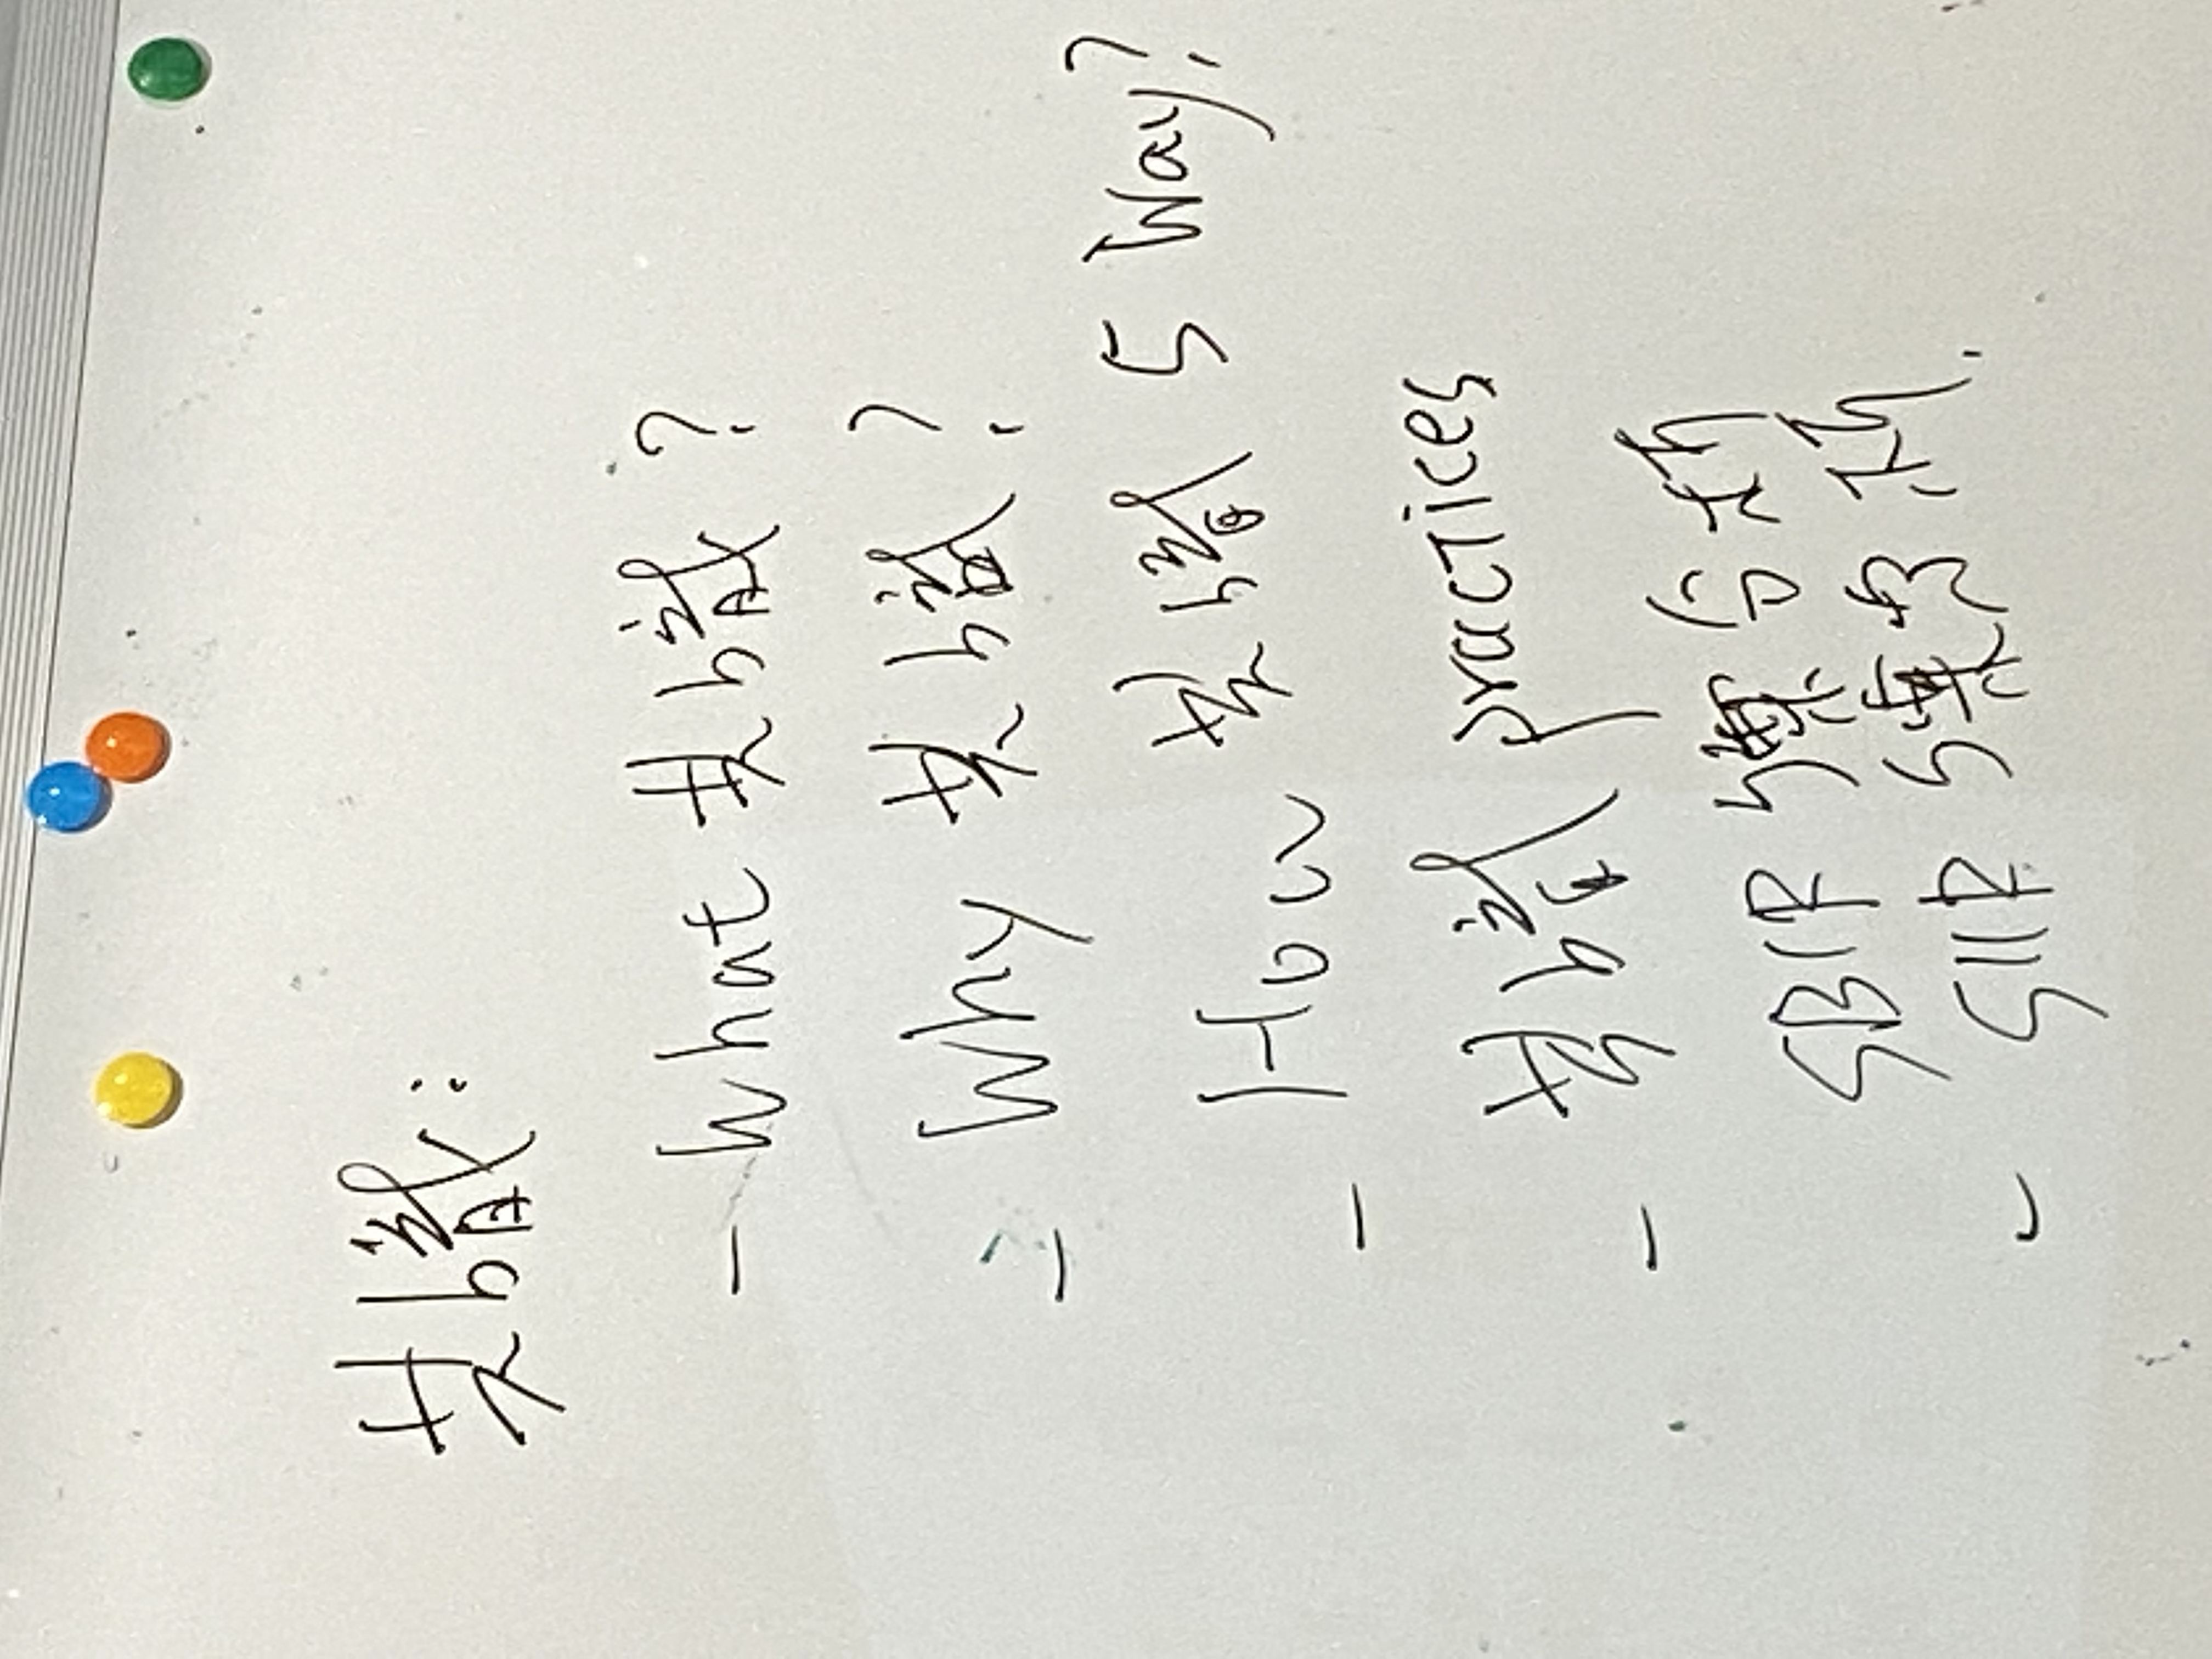 共識:
- What 共識?
- Why 共識?
- How 共識 5 Way?
- 共識 practices
SBIR 標案分析
- SIIR 標案分析.